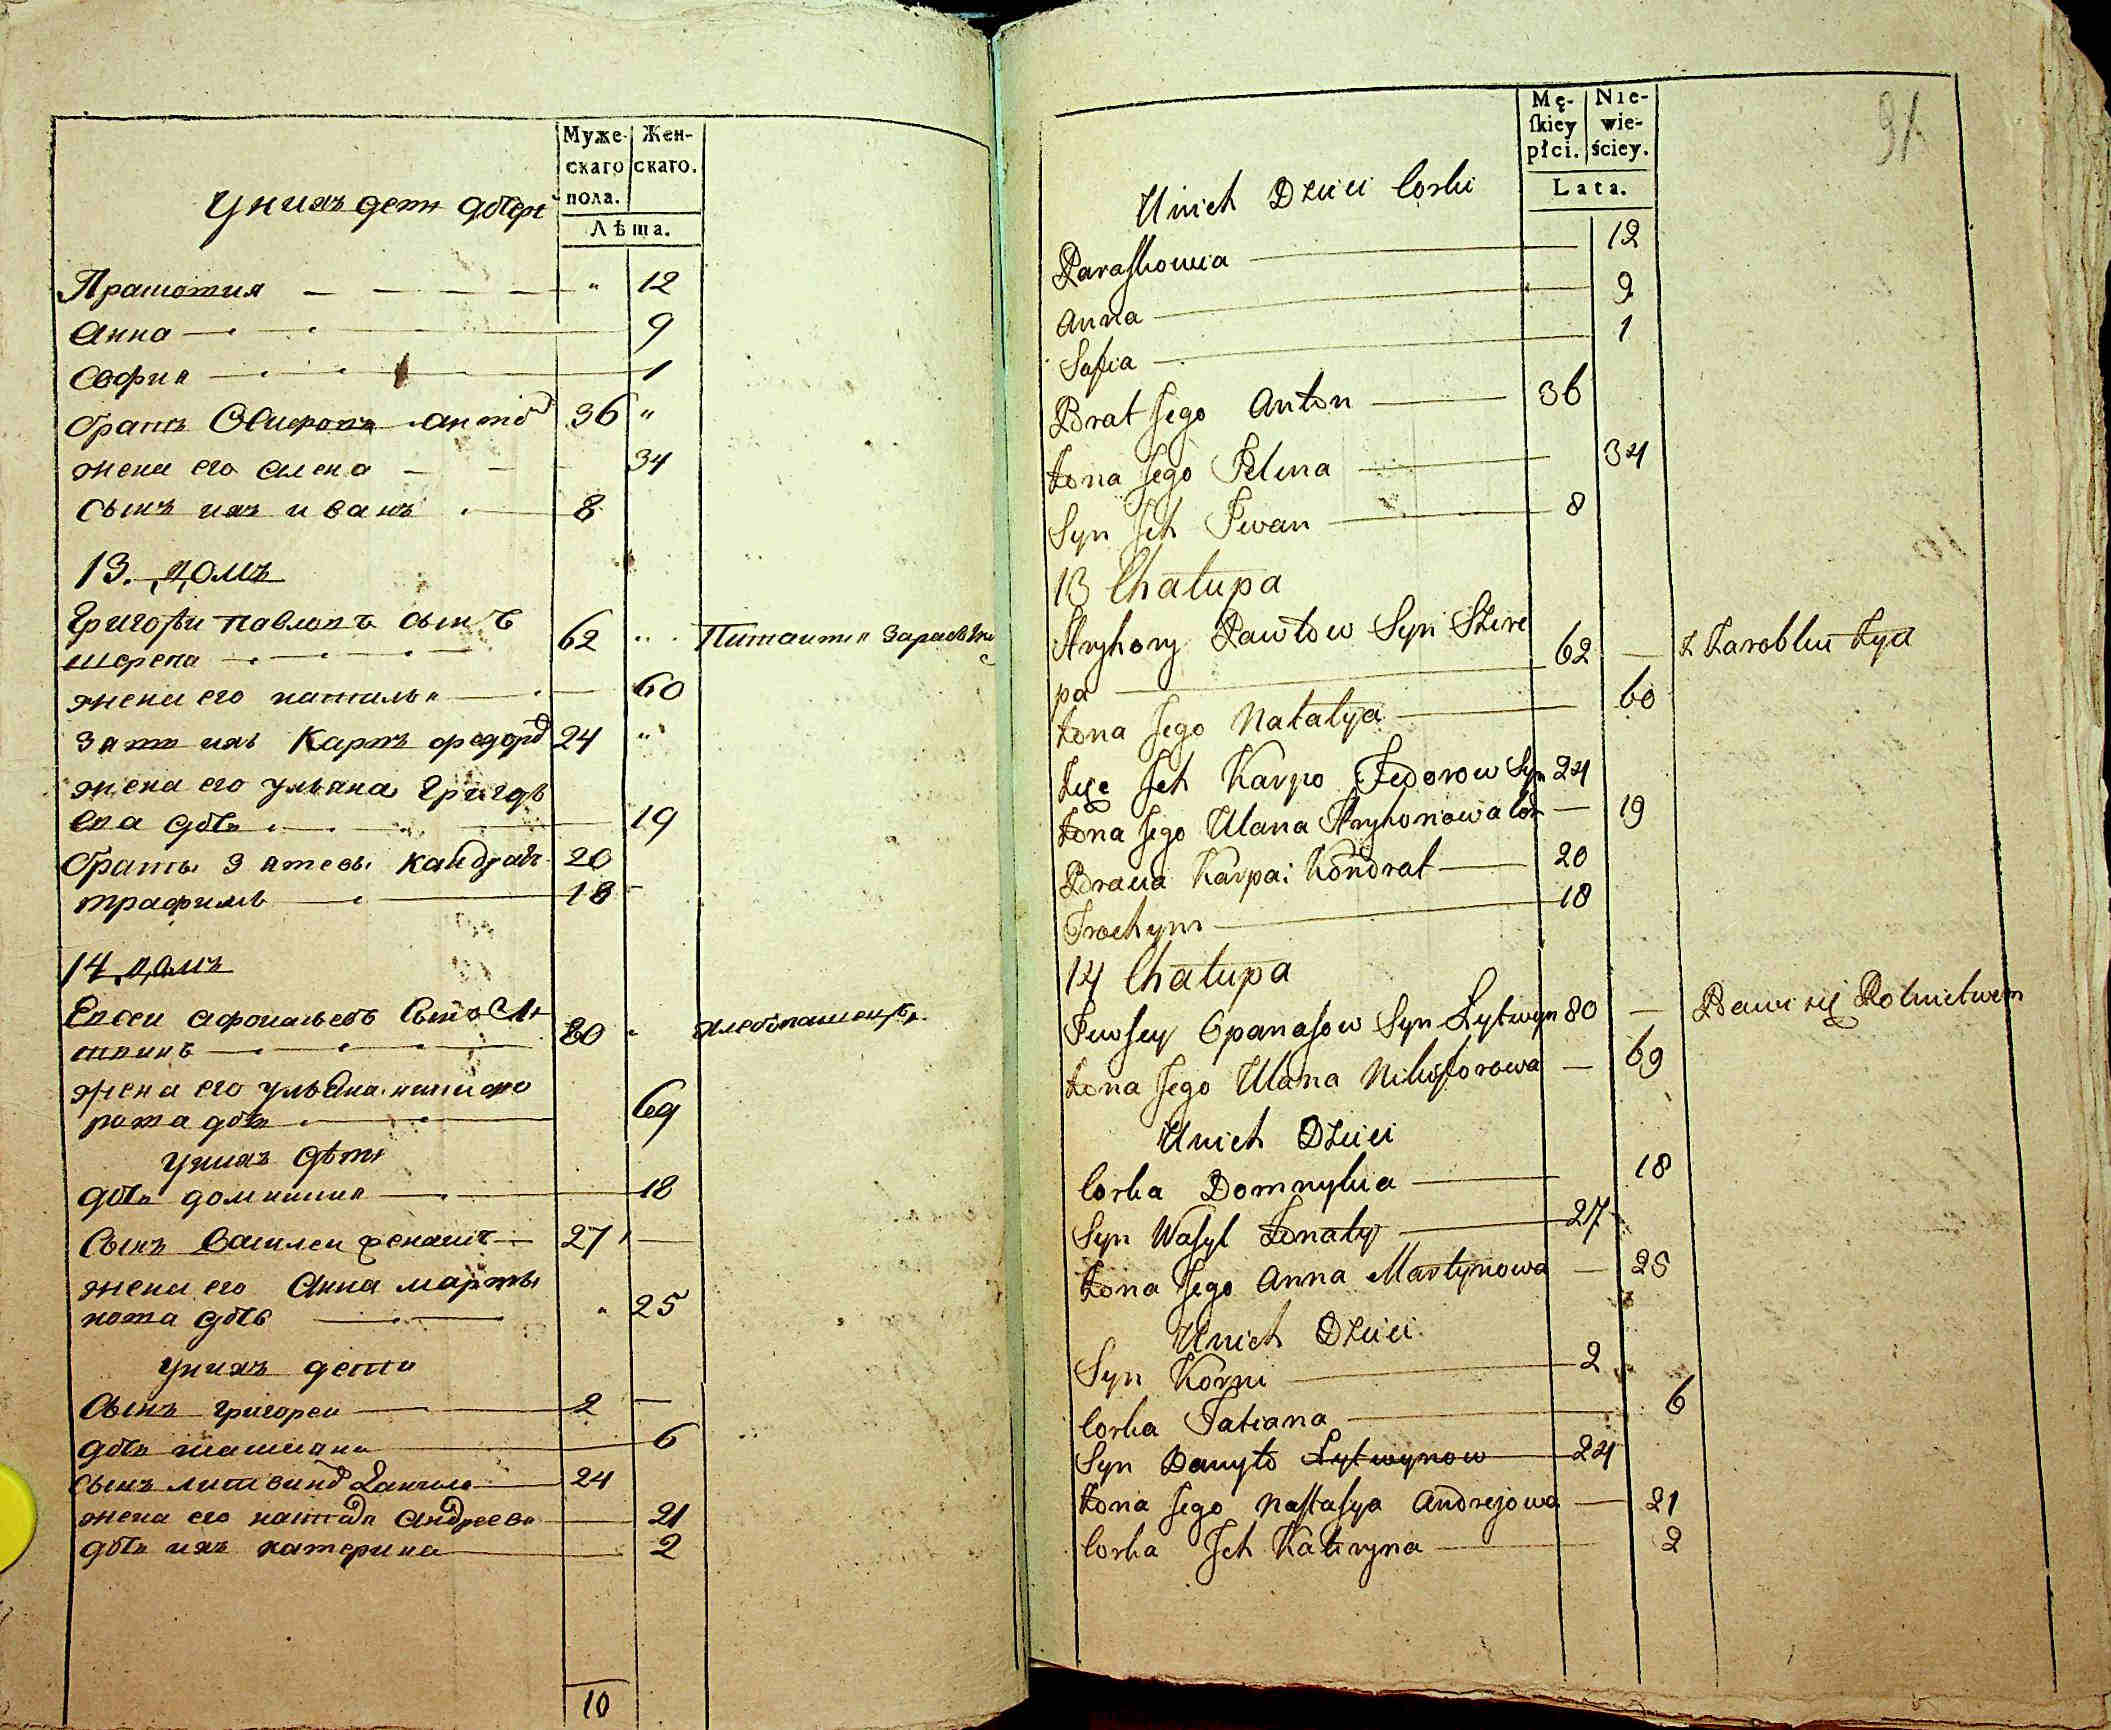 Муже-
скаго
пола.
Жен-
скаго.
Лѣта.
У нихъ дети дочери
Прасковия — — — — " 12
Анна — — 9
Софиа — — 1
братъ Антонъ 36 "
жена его Алена — — 34
сынъ ихъ иванъ — 8
13. домъ
Григореи павловъ сынъ 62 " Питаитца
шерепа —
жена его наталья — 60
зять ихъ Карпъ федоров 24 "
жена его ульяна Григорь
ева дочь — 19
браты зятевы Кандрат 20
трафимъ — 18 -
14 домъ
Евсеи афонасьевъ Сынъ Ли 80 " хлебопашенствомъ
твинъ —
жена его ульяна никифо
рова дочь — 69
У нихъ дети
дочь домникия — 18
Сынъ Василеи — 27 —
жена его Анна марты
нова дочь — " 25
У нихъ дети
Сынъ григореи — 2 —
дочь татиана — 6
сынъ литвинов Данило — 24
жена его Андреева — 21
дочь ихъ катерина — 2
10
Mę-
skiey
płci.
Nie-
wie-
ściey.
Lata.
91
U nich Dzieci Corki
Paraskowia — 12
Anna — 9
Sofia — 1
Brat Jego Anton — 36
Żona Jego Helena — 34
Syn Jch Jwan — 8
13 Chałupa
Hryhory Pawłow Syn Szere 62 — Z Zarobku Żyd
pa —
Żona Jego Natalya — 60
Zięc Jch Karpo Fedorow Syn 24
Żona Jego Ulana Hryhorowa Cor — 19
Bracia Karpa: Kondrat — 20
Trochym — 18
14 Chałupa
Jewsey Opanasow Syn Lytwyn 80 — Bawi się Rolnictwem
Żona Jego Ulana Nikiforowa — 69
U nich Dzieci
Corka Domnykia — 18
Syn Wasyl Jonaty — 27
Żona Jego Anna Martynowa — 25
U nich Dzieci
Syn Korni — 2
Corka Tatiana — 6
Syn Danyło Lytwynow 24
Żona Jego Nastasya Andrejowa — 21
Corka Jch Kateryna — 2